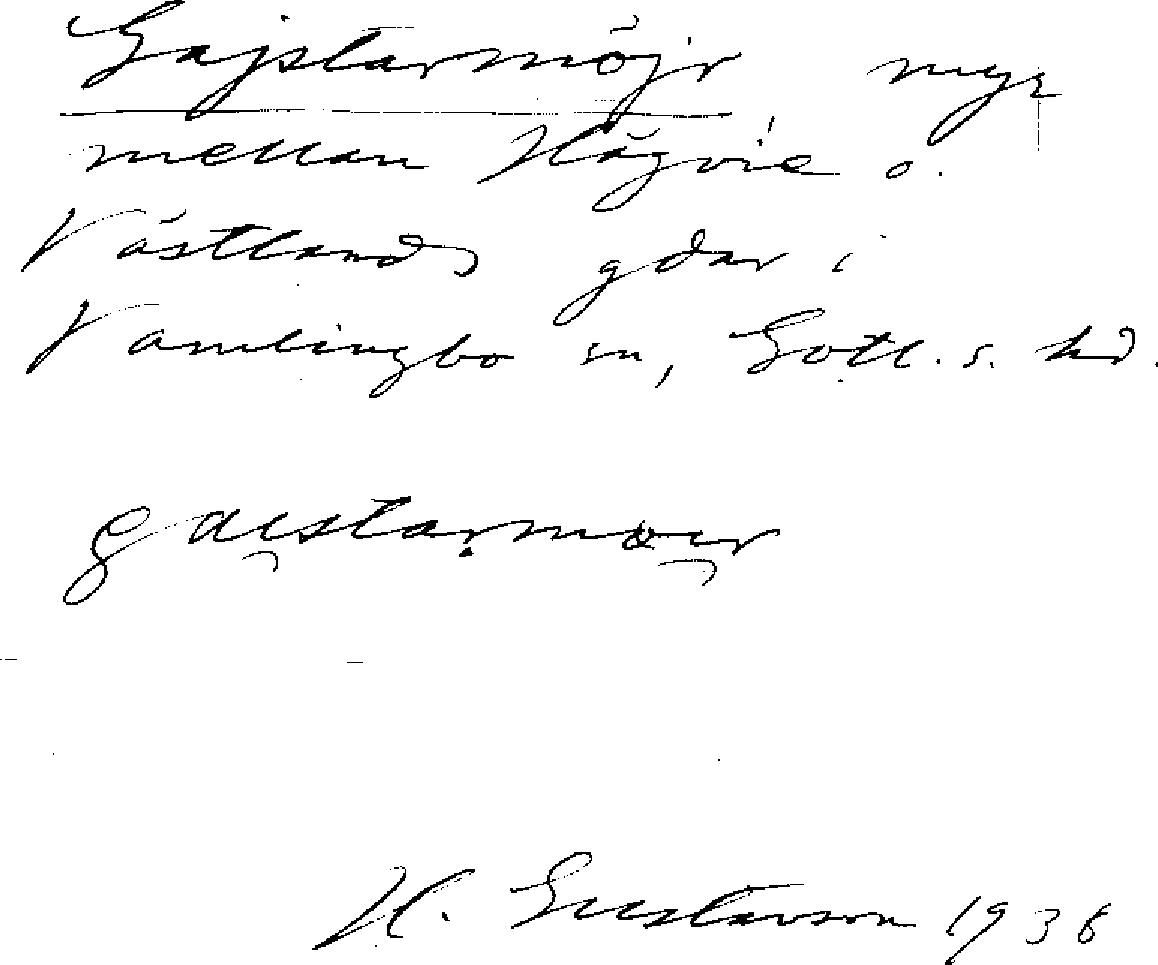 Gajstarmöjr myr
mellan Hägvie o.
Västlands gdar i
Vamlingbo sn, Gotl. s. hd.
gaistarmöir
H. Gustavson 1936